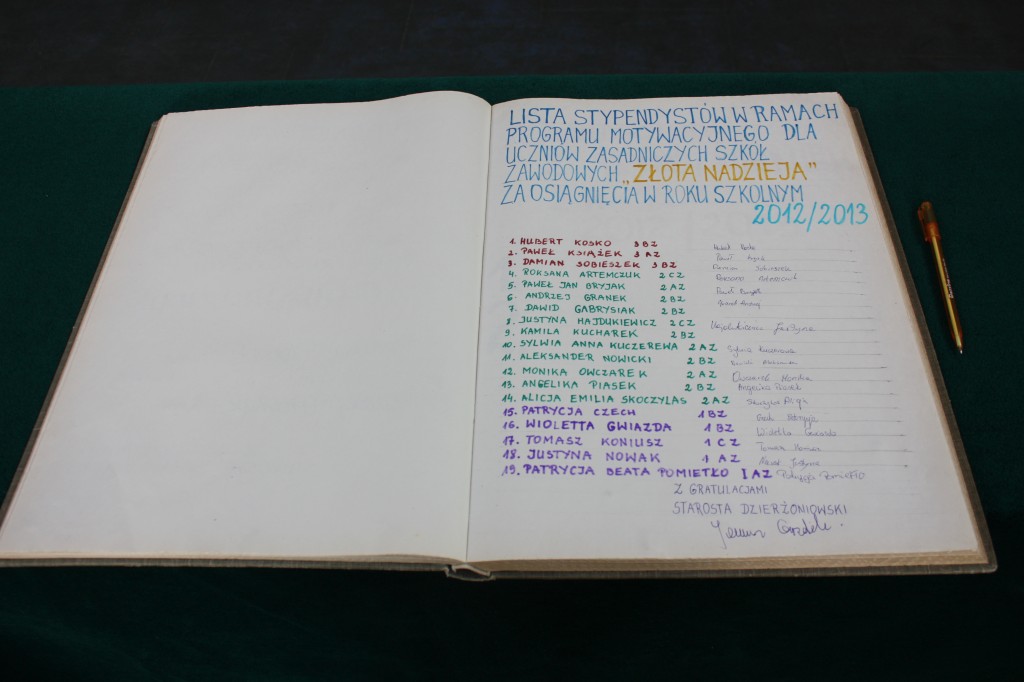 LISTA STYPENDYSTÓW W RAMACH
PROGRAMU MOTYWACYJNEGO DLA
UCZNIÓW ZASADNICZYCH SZKÓŁ
ZAWODOWYCH „ZŁOTA NADZIEJA"
ZA OSIĄGNIĘCIA W ROKU SZKOLNYM
2012/2013
1. HUBERT KOSKO 3 BZ
2. PAWEŁ KSIĄŻEK 3 AZ
3. DAMIAN SOBIESZEK 3 BZ
4. ROKSANA ARTEMCZUK 2 CZ
5. PAWEŁ JAN BRYJAK 2 AZ
6. ANDRZEJ GRANEK 2 BZ
7. DAWID GABRYSIAK 2 BZ
8. JUSTYNA HAJDUKIEWICZ 2 CZ
9. KAMILA KUCHAREK 2 BZ
10. SYLWIA ANNA KUCZEREWA 2 AZ
11. ALEKSANDER NOWICKI 2 BZ
12. MONIKA OWCZAREK 2 AZ
13. ANGELIKA PIASEK 2 BZ Angelika Piasek
14. ALICJA EMILIA SKOCZYLAS 2 AZ
15. PATRYCJA CZECH 1 BZ
16. WIOLETTA GWIAZDA 1 BZ Wioletta
17. TOMASZ KONIUSZ 1 CZ
18. JUSTYNA NOWAK 1 AZ Nowak Justyna
19. PATRYCJA BEATA POMIETŁO 1 AZ Patrycja Pomietło
Z GRATULACJAMI
STAROSTA DZIERŻONIOWSKI